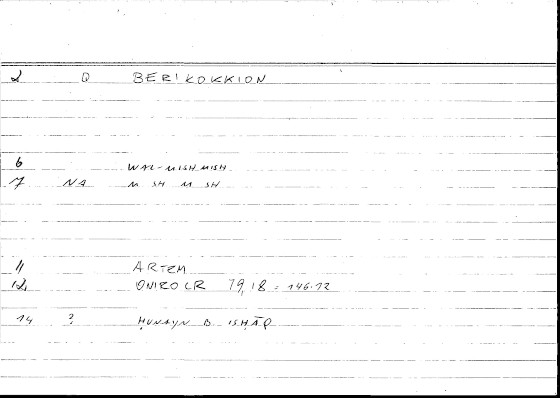 2 Q BERIKOKKION
6 WAL-MISHMISH
7 NA MISHMISH
11 ARTEM
12 ONIROCR 79,18 = 146.12
14 ? ḤUNAYN B ISḤĀQ